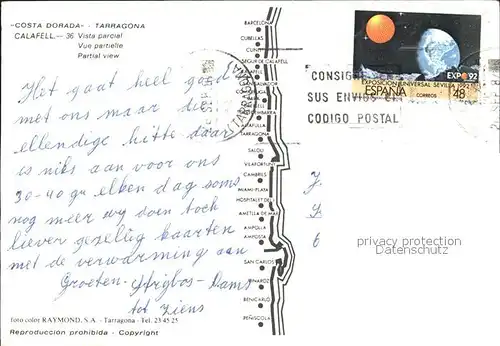 "COSTA DORADA" - TARRAGONA
CALAFELL.- 36 Vista parcial
Vue partielle
Partial view
Het gaat heel goed
met ons maar die
ellendige hitte daar
is niks aan voor ons
30-40 gr elken dag soms
nog meer wy doen toch
liever gezellig kaarten
met de verwarming aan
Groeten
tot ziens
foto color RAYMOND, S.A. - Tarragona - Tel. 23 45 25
Reproducción prohibida - Copyright
BARCELONA
CUBELLAS
CUNIT
SEGUR DE CALAFELL
TARRAGONA
SALOU
VILAFORTUNY
CAMBRILS
MIAMI-PLAYA
HOSPITALET DEL I
AMETLLA DE MAR
AMPOLLA
AMPOSTA
SAN CARLOS
VINAROZ
BENICARLO
PEÑISCOLA
TARRAGONA
CONSIGNE
SUS ENVIOS EL
CODIGO POSTAL
EXPO 92
EXPOSICION UNIVERSAL SEVILLA 1992
ESPAÑA CORREOS 48
privacy protection
Datenschutz